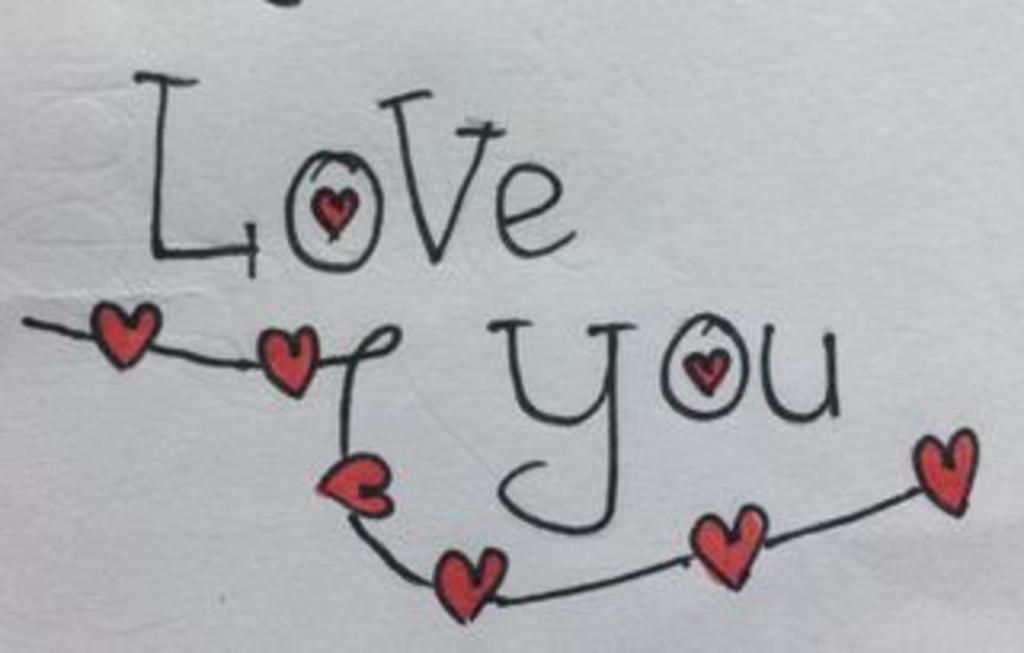 LoVe
you